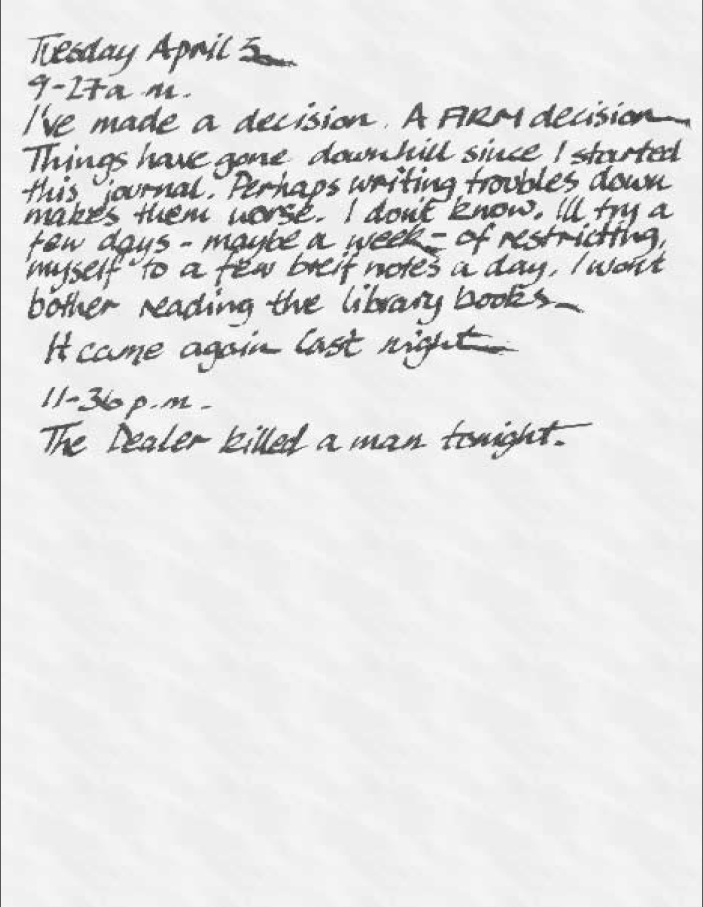 Tuesday April 5
9-27a.m.
I've made a decision. A FIRM decision
Things have gone downhill since I started
this journal. Perhaps writing troubles down
makes them worse. I don't know. I'll try a
few days - maybe a week - of restricting,
myself to a few breif notes a day. I won't
bother reading the library books
It came again last night
11-36 p.m.
The Dealer killed a man tonight.